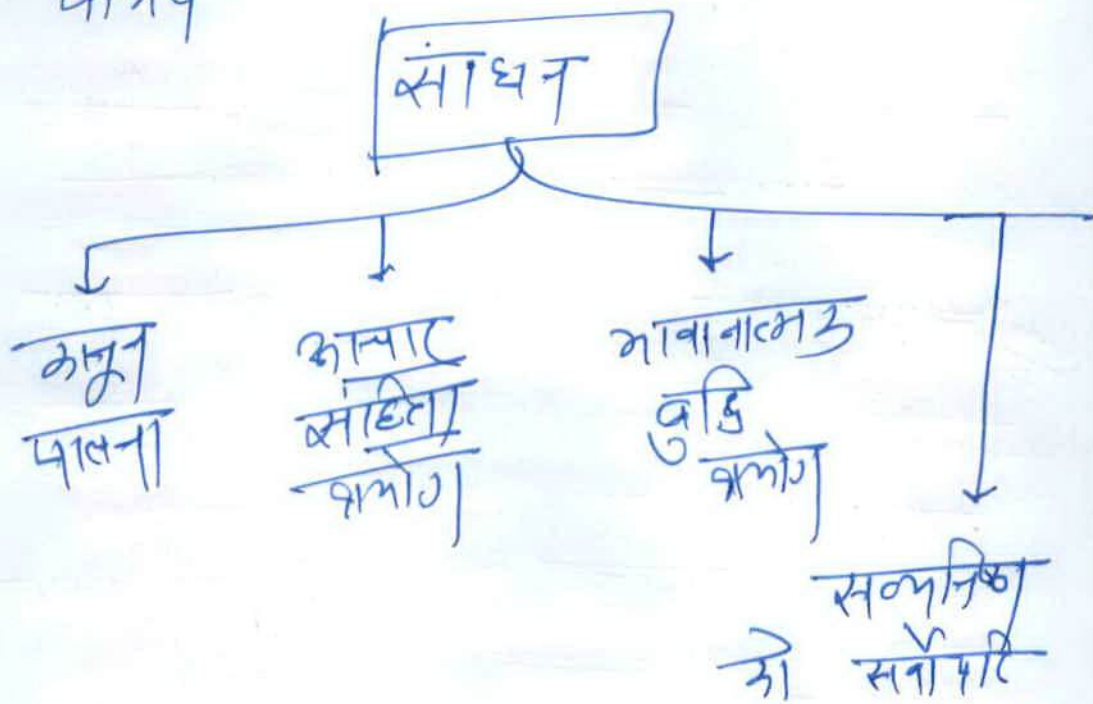 साधन
कानून
पालना
आचार
संहिता
प्रयोग
भावानात्मक
बुद्धि
प्रयोग
सत्यनिष्ठा
को सर्वोपरि